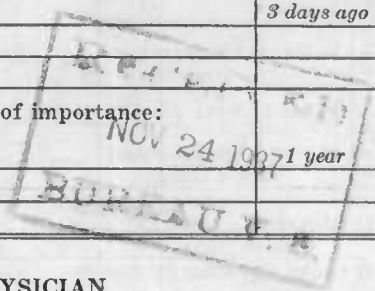 3 days ago
of importance:
NOV 24 1937
1 year
BUREAU
YSICIAN